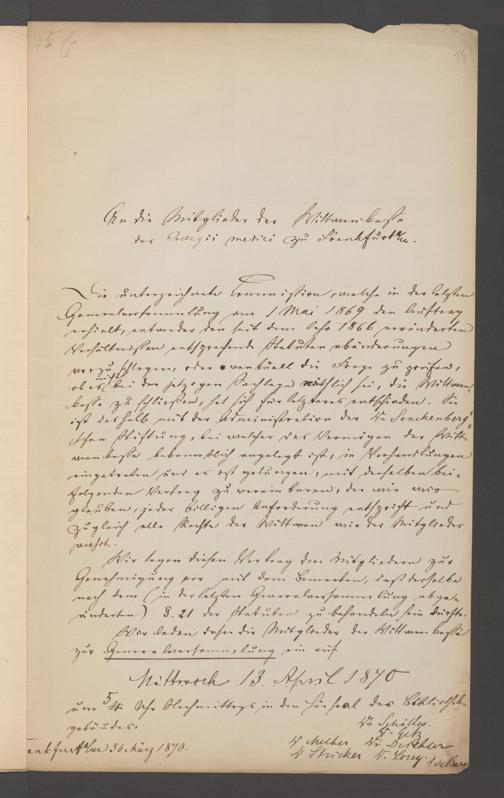 An die Mitglieder der Wittwenkasse
des Collegii medici zu Frankfurt a/M.
Die unterzeichnete Commission, welche in der letzten
Generalversammlung am 1 Mai 1869 den Auftrag
erhielt, entweder den seit dem Jahr 1866 veränderten
Verhältnissen entsprechende Statutenabänderungen
vorzuschlagen, oder eventuell die Frage zu prüfen,
ob es bei der jetzigen Sachlage räthlich sei, die Wittwen-
kasse zu schließen, hat sich für letzteres entschieden. Sie
ist deshalb mit der Administration der Dr. Senckenberg'
schen Stiftung, bei welcher das Vermögen der Witt-
wenkasse bekanntlich angelegt ist, in Verhandlungen
eingetreten und es ist gelungen, mit derselben bei-
folgenden Vertrag zu vereinbaren, der wie wir
glauben, jeder billigen Anforderung entspricht und
zugleich alle Rechte der Wittwen wie der Mitglieder
wahrt.
Wir legen diesen Vertrag den Mitgliedern zur
Genehmigung vor mit dem Bemerken, daß derselbe
nach dem (in der letzten Generalversammlung abge-
änderten) §. 21 der Statuten zu behandeln sein dürfte.
Wir laden daher die Mitglieder der Wittwenkasse
zur Generalversammlung ein auf
Mittwoch 13. April 1870
um 5 Uhr Nachmittags in den Hörsaal des Bibliothek-
gebäudes.
Frankfurt a/M 30 März 1870.
Dr. Melber
Dr. Stricker